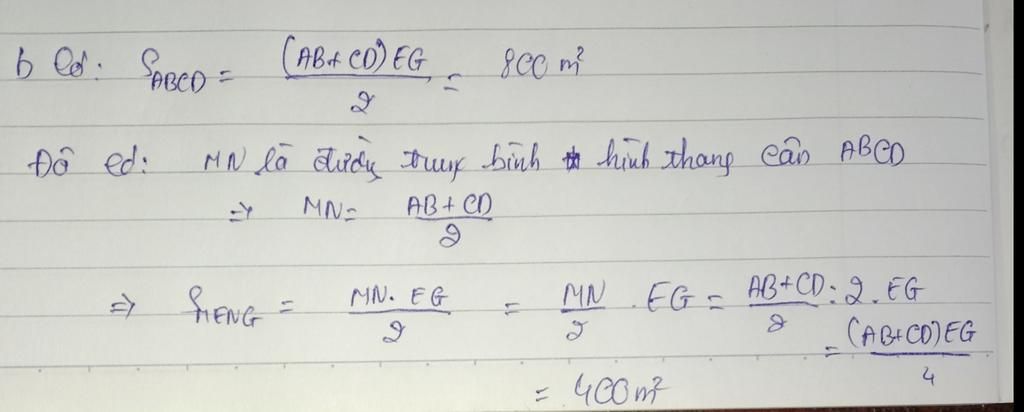 b Có: S_ABCD = (AB+CD)EG / 2 = 800 m²
Do có: MN là đường trung bình hình thang cân ABCD
=> MN = AB + CD / 2
=> S_MENG = MN. EG / 2 = MN / 2 . EG = AB+CD / 2 : 2 . EG
= (AB+CD)EG / 4
= 400m²